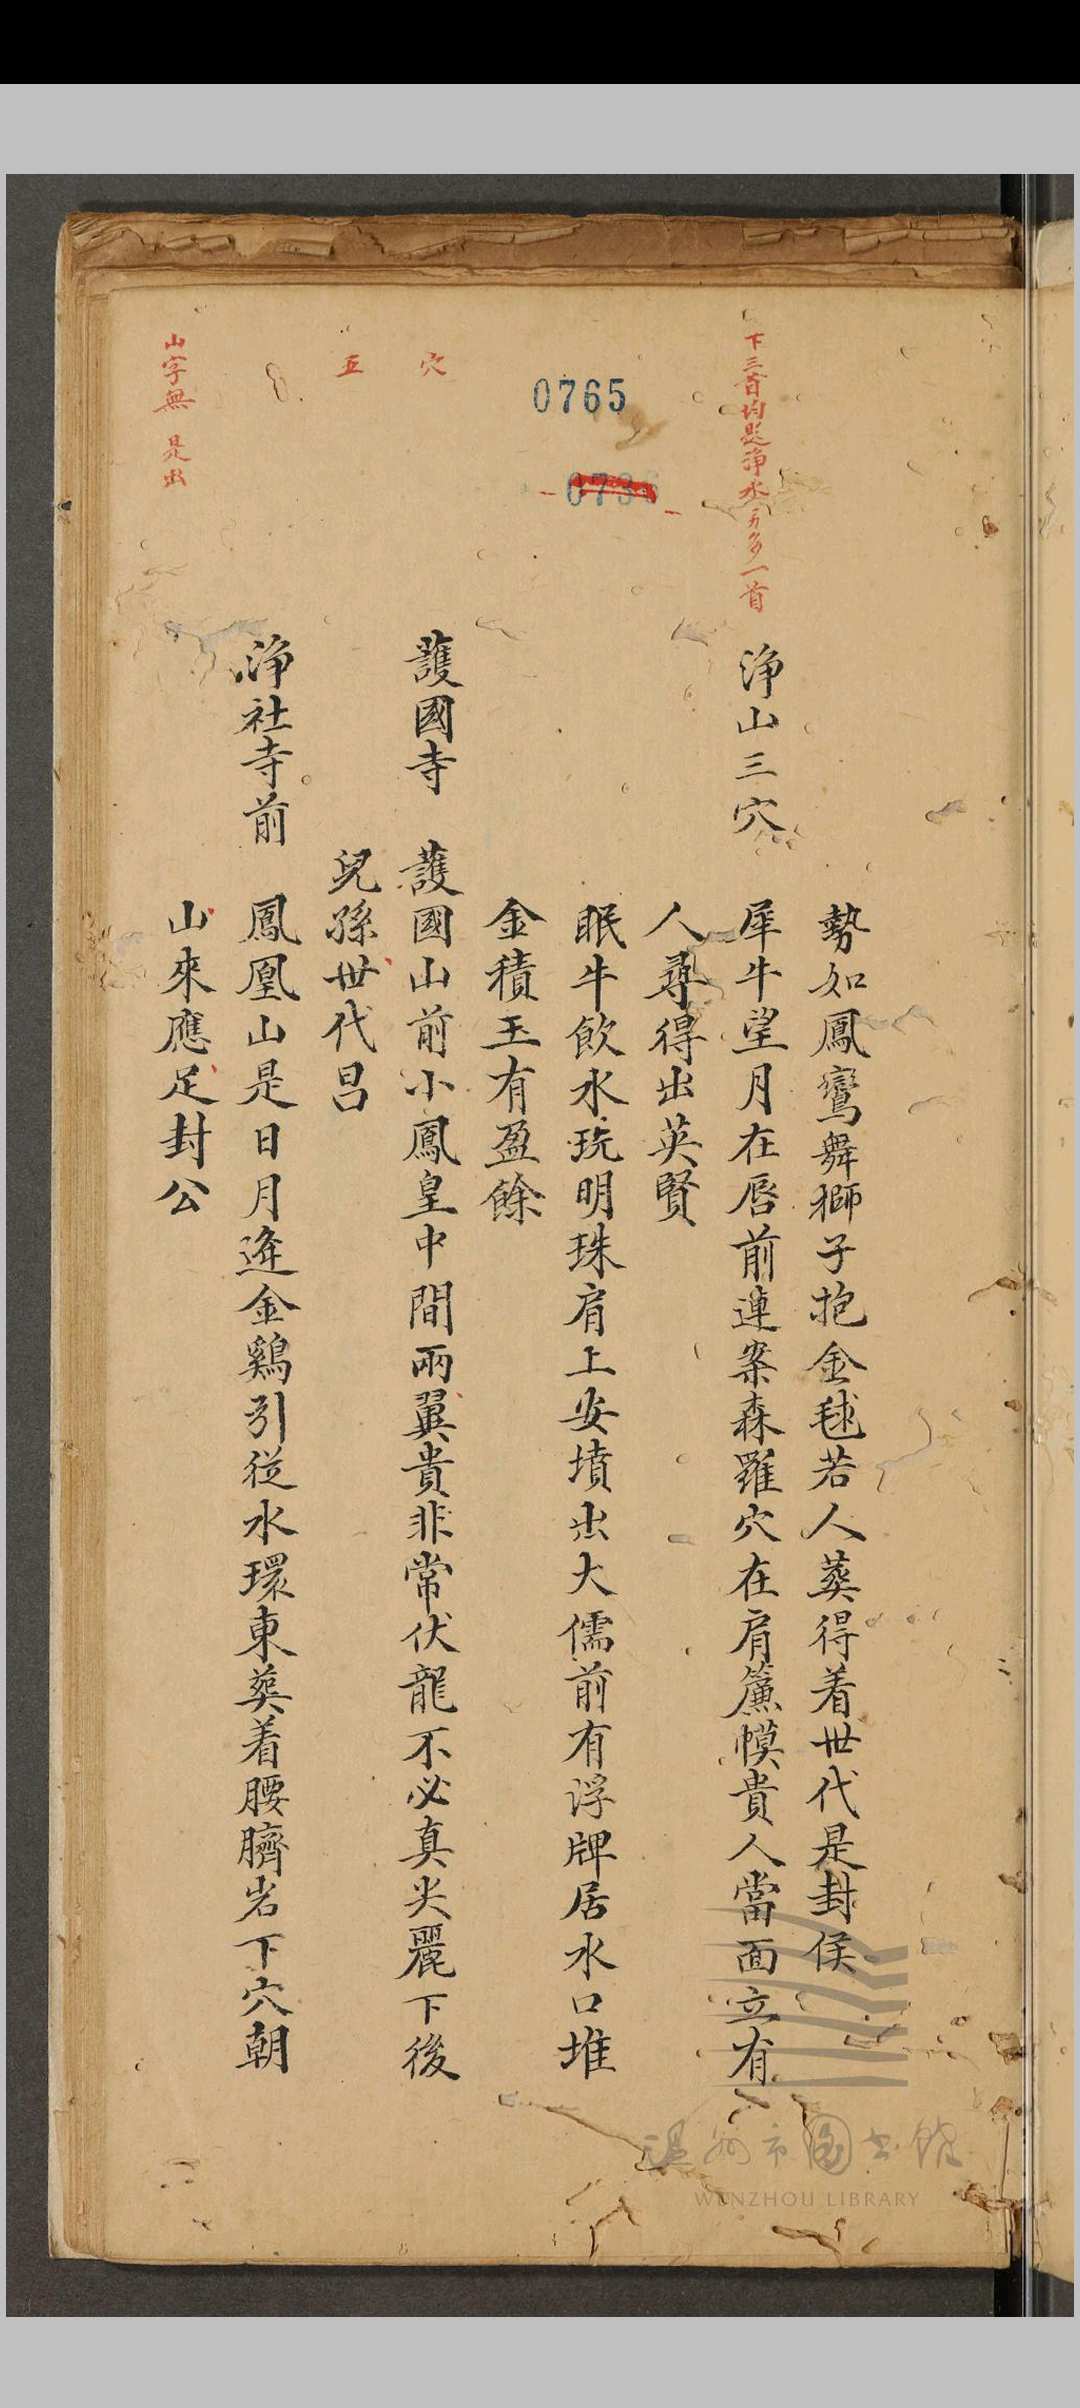 勢如鳳鸞舞獅子抱金毬若人葬得着世代是封侯
下三首均是淨水另多一首
淨山三穴
犀牛望月在唇前連案森羅穴在肩簾幙貴人當面立有
人尋得出英賢
0765
0736
眠牛飲水玩明珠肩上安墳出大儒前有浮牌居水口堆
金積玉有盈餘
穴
護國寺 護國山前小鳳皇中間兩翼貴非常伏龍不必真尖麗下後
五
兒孫世代昌
淨社寺前 鳳凰山是日月逄金鷄引從水環東葬着腰臍岩下穴朝
山字無 是出
山來應足封公
温州市图书馆
WENZHOU LIBRARY